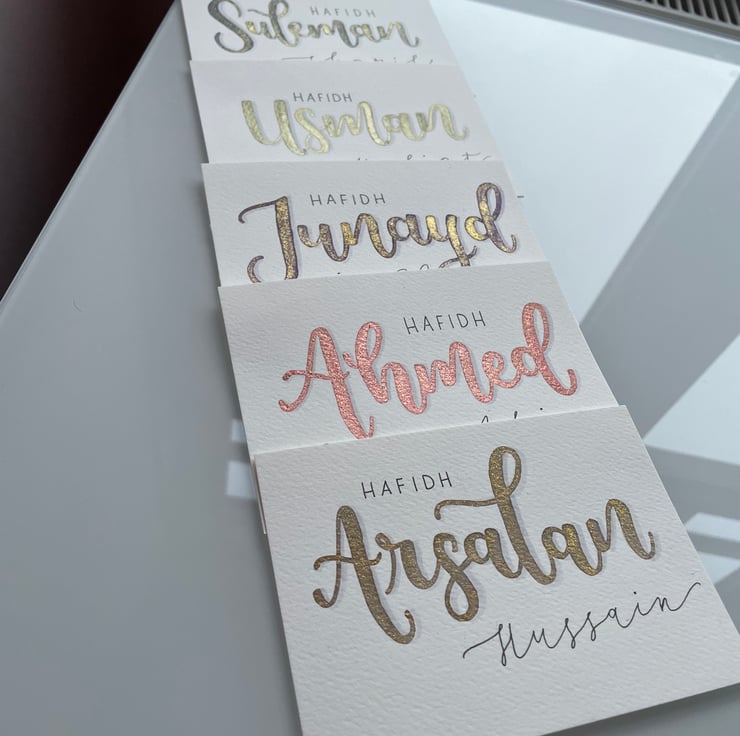 HAFIDH
Suleman
HAFIDH
Usman
HAFIDH
Junayd
HAFIDH
Ahmed
HAFIDH
Arsalan
Hussain